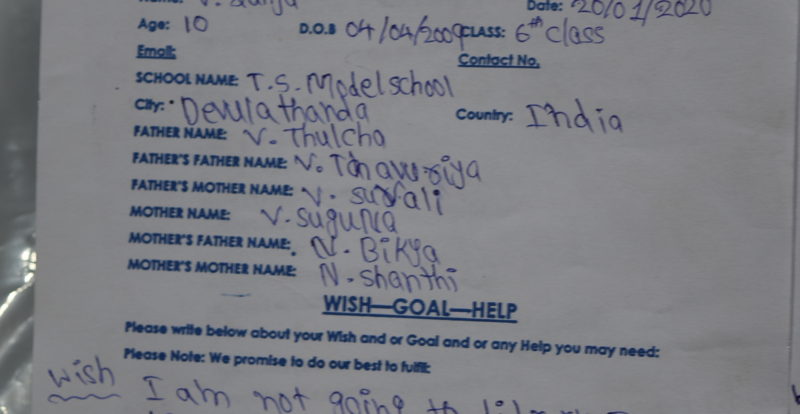 Date: 20/01/2020
Age: 10 D.O.B 04/04/2009 CLASS: 6th class
Email: Contact No.
SCHOOL NAME: T.S. Model school
City: Devulathanda Country: India
FATHER NAME: V. Thulcha
FATHER'S FATHER NAME: V.
FATHER'S MOTHER NAME: V.
MOTHER NAME: V. suguna
MOTHER'S FATHER NAME: N. Bikya
MOTHER'S MOTHER NAME: N. shanthi
WISH—GOAL—HELP
Please write below about your Wish and or Goal and or any Help you may need:
Please Note: We promise to do our best to fulfil:
wish I am not going